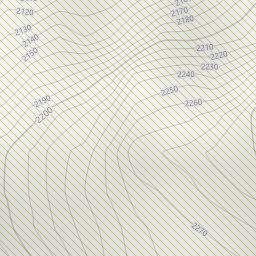 2120
2170
2180
2130
2140
2150
2210
2220
2230
2240
2250
2260
2190
2200
2270